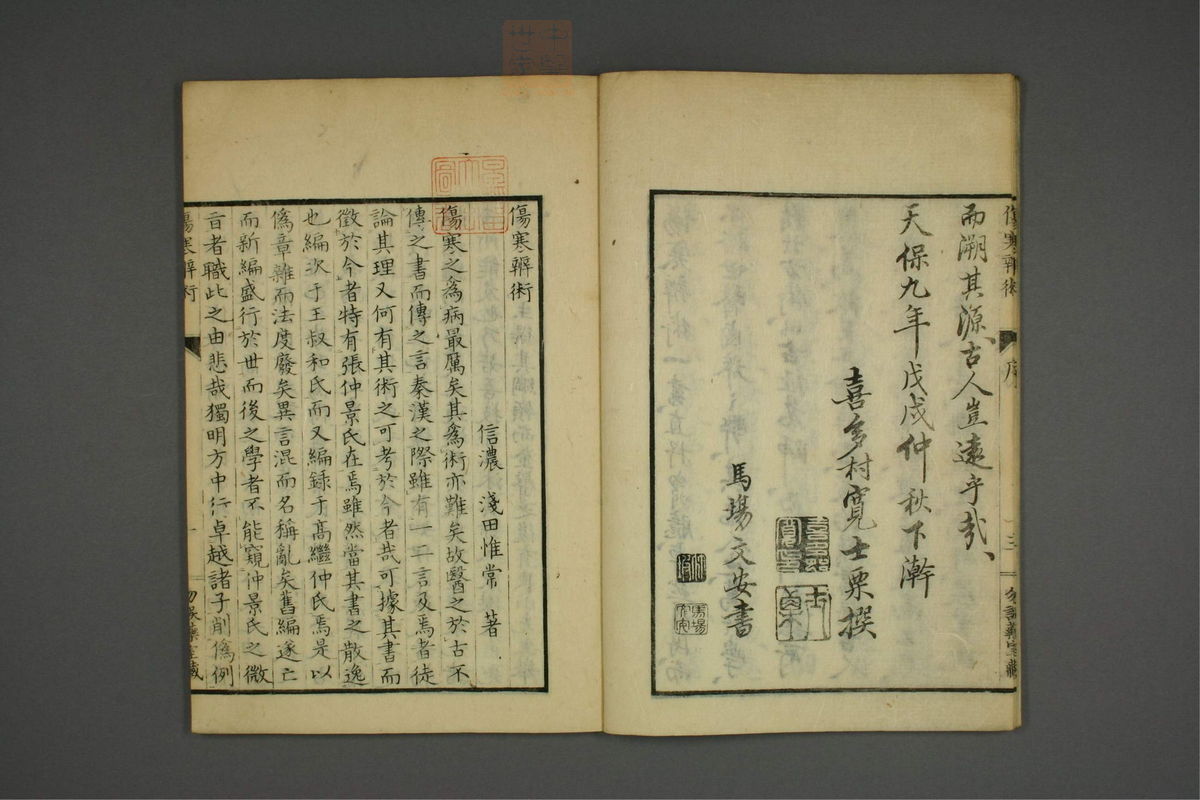 而溯其源古人豈遠乎哉
天保九年戊戌仲秋下澣
喜多村寬士栗撰
馬場文安書
傷寒辨術
序
三
傷寒辨術
信濃 淺田惟常 著
傷寒之爲病最厲矣其爲術亦難矣故醫之於古不
傳之書而傳之言秦漢之際雖有一二言及焉者徒
論其理又何有其術之可考於今者哉可據其書而
徵於今者特有張仲景氏在焉雖然當其書之散逸
也編次于王叔和氏而又編録于高繼仲氏焉是以
僞章雜而法度廢矣異言混而名稱亂矣舊編遂亡
而新編盛行於世而後之學者不能窺仲景氏之微
旨者職此之由悲哉獨明方中行卓越諸子削僞例
傷寒辨術
一